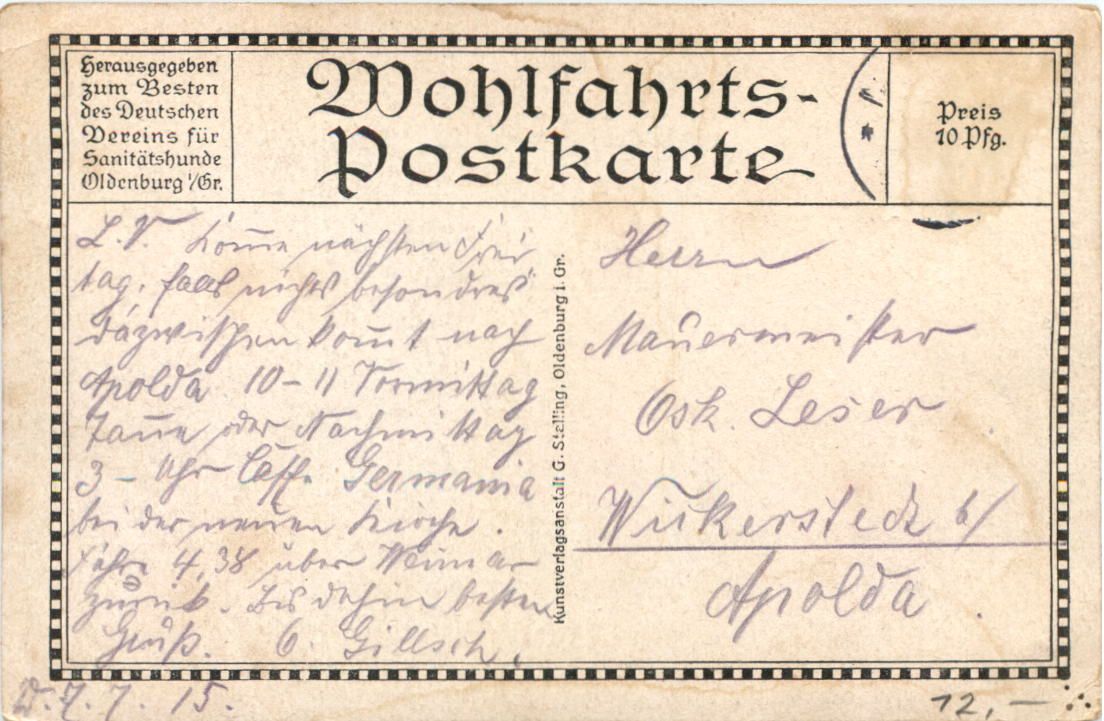 Herausgegeben
zum Besten
des Deutschen
Vereins für
Sanitätshunde
Oldenburg i/Gr.
Wohlfahrts-
Postkarte
Preis
10 Pfg.
L. V. Kom̅e nächsten Frei
tag, falls nichts besondres
dazwischen kom̅t nach
Apolda 10-11 Vormittag
Tan̅e oder Nachmittag
3 - Uhr Caffe Germania
bei der neuen Kirche.
Fahre 4,38 über Weimar
zurück. Bis dahin besten
Gruß. O. Gillsch.
D. 7. 7. 15.
Kunstverlagsanstalt G. Stalling, Oldenburg i. Gr.
Herrn
Mauermeister
Osk. Leser
Wickerstedt b/
Apolda.
12,-